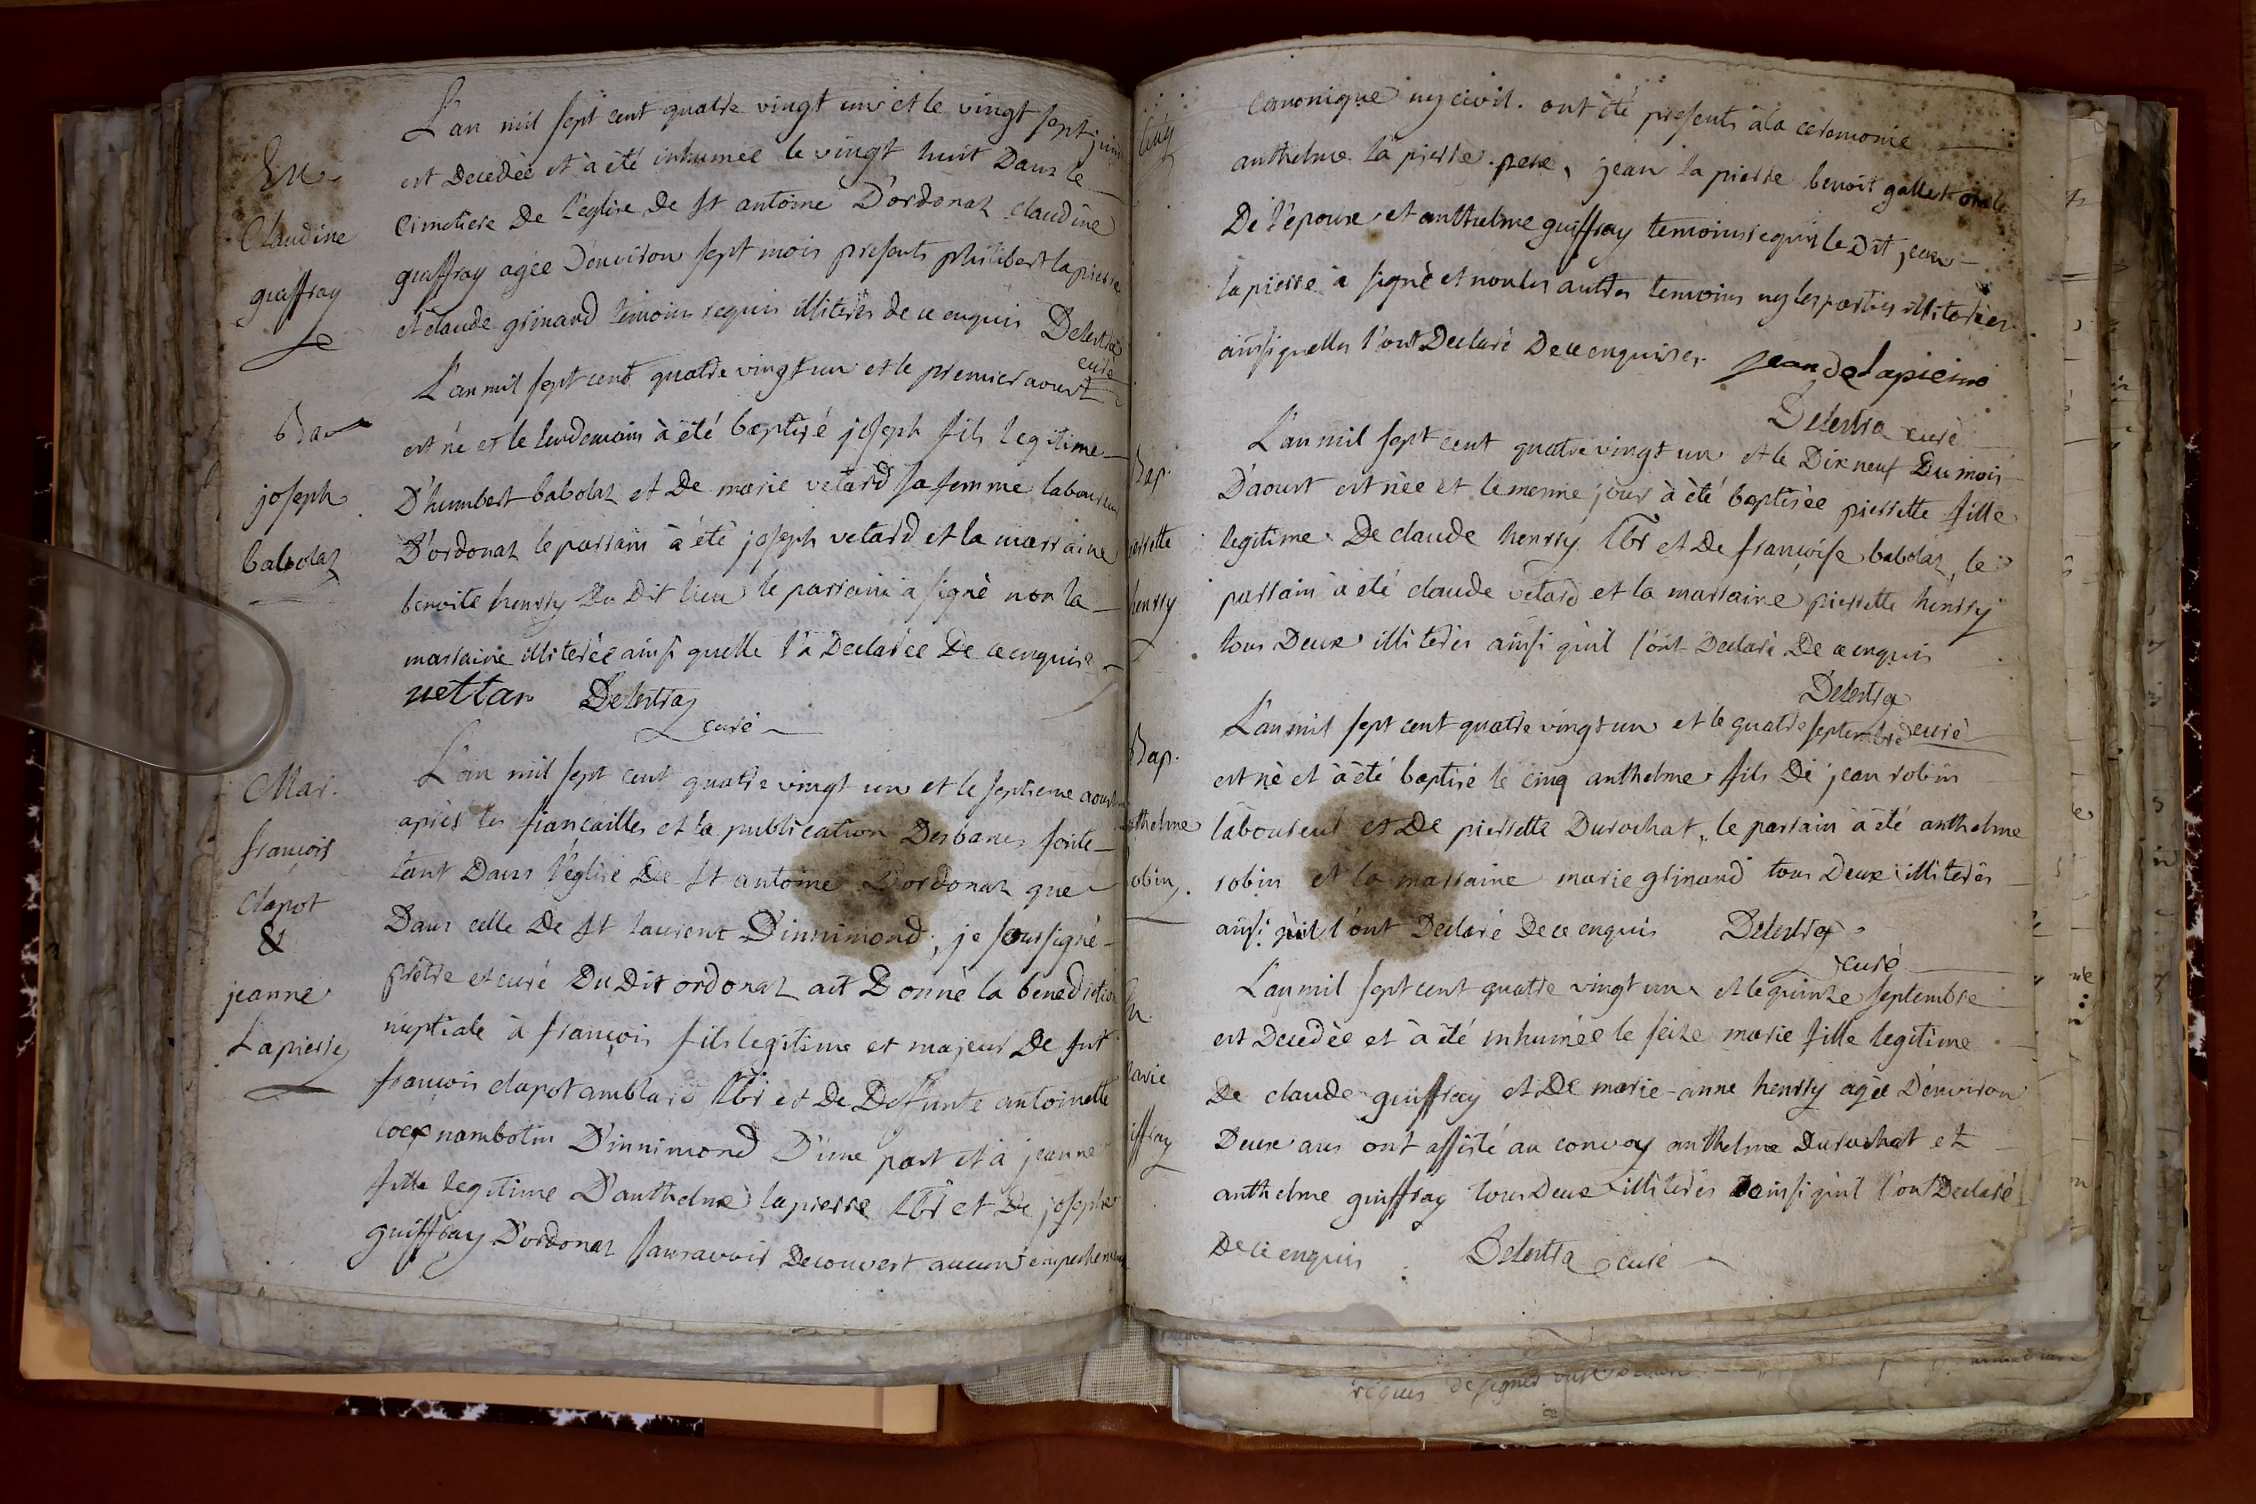 L'an mil sept cent quatre vingt un et le vingt sept juin
est decedèé et à été inhumée le vingt huit Dans le
Ent
Claudine
guiffray
Cimetiere De l'eglise De St antoine D'ordonaz claudine
guiffray agée D'environ sept mois presents philibert lapierre
et claude grinand temoins requis illiterés de ce enquis Delestra
curé
L'an mil sept cent quatre vingt un et le premier aoust
Bap
joseph
babolaz
est né et le lendemain à été baptisé joseph fils legitime
D'humbert babolaz et De marie vetard sa femme laboureur
D'ordonaz le parrain à été joseph vetard et la marraine
benoite henrry Du Dit lieu le parrain a signè non la
marraine illiterée ainsi quelle l'a Declarée De ce enquise
vettar Delestra
curé
L'an mil sept cent quatre vingt un et le septieme aoust
Mar.
françois
clapot
&
jeanne
Lapierre
apres les fiancailles et la publication Des bancs faite
tant Dans l'eglise De St antoine D'ordonaz que
Dans celle De St laurent D'innimond, je soussigné
prêtre et curé Du Dit ordonaz ait Donnè la benediction
nuptiale à françois fils legitime et majeur De fut
françois clapot amblard lbr et De Defunte antoinette
nambotin D'innimond D'une part et à jeanne
fille legitime D'anthelme lapierre lbr et De josephte
guiffray D'ordonaz sans avoir Decouvert aucun empechement
canonique ny civil. ont été presents à la ceremonie
anthelme la pierre pere, jean la pierre benoit gallet oncle
De l'epouse et anthelme guiffray temoins requis le Dit jean
lapierre à signè et non les autres temoins ny les parties illiterées
ainsi quelles l'ont Declaré De ce enquises. jean De lapierre
Delestra curé
L'an mil sept cent quatre vingt un et le Dix neuf Du mois
Bap.
pierrette
henrry
D'aoust est née et le mesme jour à été baptisée pierrette fille
legitime De claude henrry lbr et De françoise babolaz, le
parrain à été claude vetard et la marraine pierrette henrry
tous Deux illiterés ainsi qu'il l'ont Declaré De ce enquis
Delestra
curé
L'an mil sept cent quatre vingt un et le quatre septembre
Bap.
anthelme
robin
est nè et à été baptisé le cinq anthelme fils De jean robin
laboureur et De pierrette Durochat, le parrain à été anthelme
robin et la marraine marie grinand tous Deux illiterés
ainsi qu'il l'ont Declaré De ce enquis Delestra
curé
L'an mil sept cent quatre vingt un et le quinze septembre
est Decedèe et à été inhumée le seize marie fille legitime
marie
iffray
De claude guiffray et De marie-anne henrry agée D'environ
Deux ans ont assisté au convoy anthelme Durochat et
anthelme guiffray tous Deux illiterés ainsi qu'il l'ont Declaré
De ce enquis Delestra curé